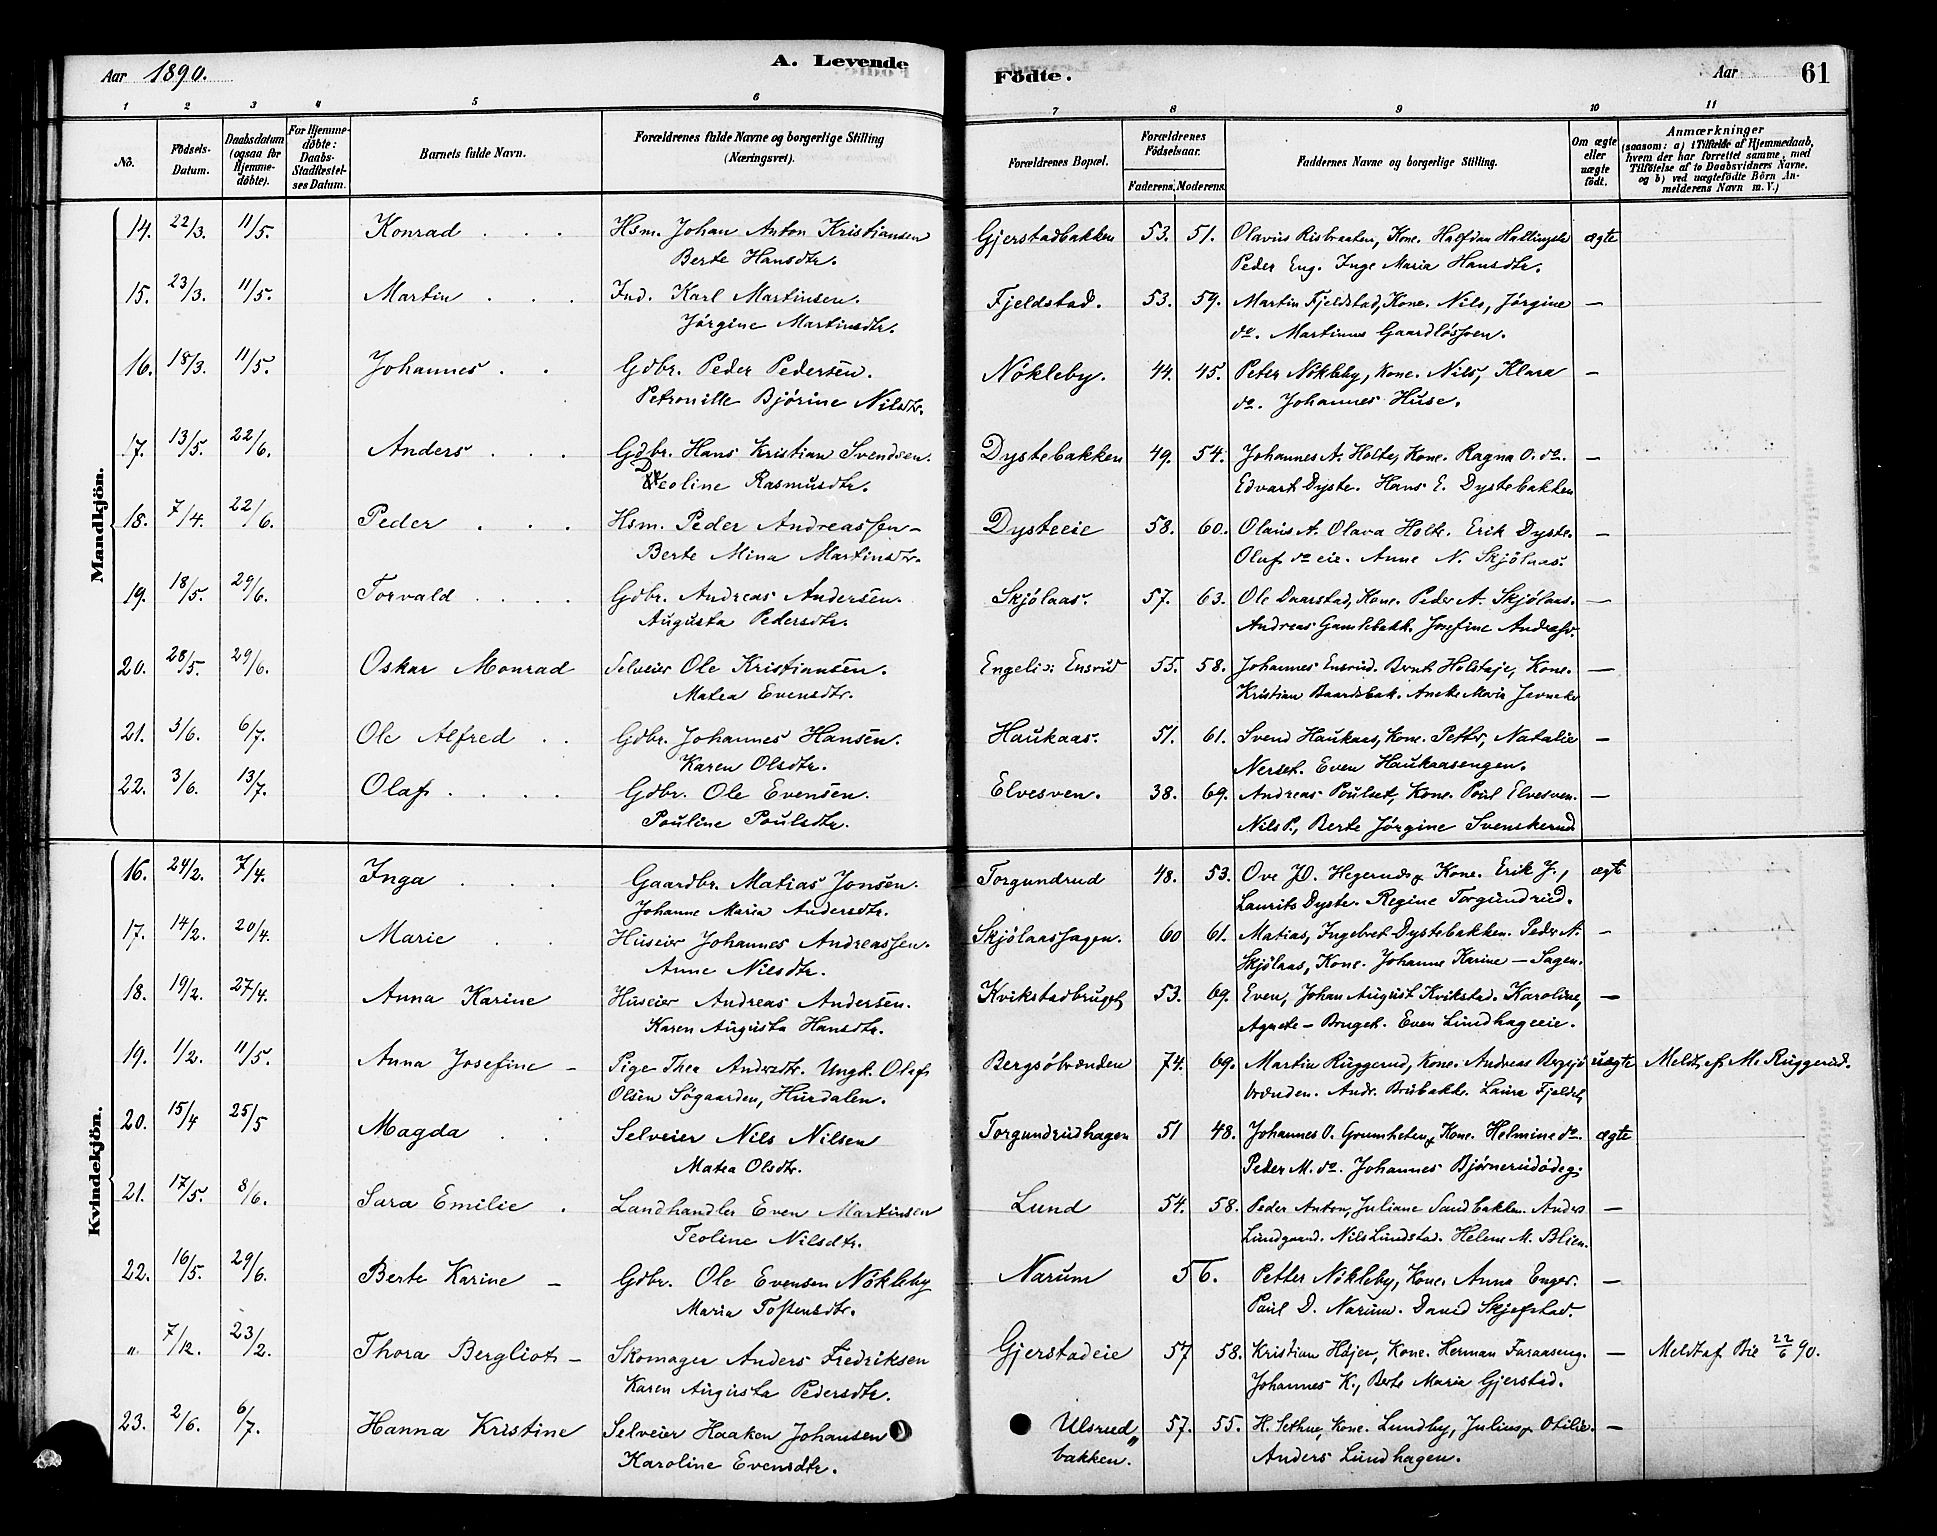 Aar 1890. A. Levende Födte. Aar 61
1 2 3 4 5 6 7 8 9 10 11
No. Födsels-Datum. Daabsdatum (ogsaa for Hjemme-døbte). For Hjemme-døbte: Daabs-Stadfæstelses Datum. Barnets fulde Navn. Forældrenes fulde Navne og borgerlige Stilling (Næringsvei). Forældrenes Bopæl. Forældrenes Fødselsaar. Faderens. Moderens. Faddernes Navne og borgerlige Stilling. Om ægte eller uægte født. Anmærkninger (saasom: a) i Tilfælde af Hjemmedaab, hvem der har forrettet samme, med Tilføielse af to Daabsvidners Navne, og b) ved uægtefødte Børn Anmelderens Navn m. V.)
Mandkjön.
14. 22/3. 11/5. Konrad Hsm. Johan Anton Kristiansen Gjerstadbakken 53. 51. Olavus Risbraaten, Kone. Halfdan Hallingsta ægte
Berte Hansdtr. Peder Eng. Inge Maria Hansdtr.
15. 23/3. 11/5. Martin Ind. Karl Martinsen. Fjeldstad. 53. 59. Martin Fjeldstad, Kone. Nils, Jörgine —
Jörgine Martinsdtr. do. Martinus Gaardlösven.
16. 18/3. 11/5. Johannes Gdbr. Peder Pedersen. Nökleby. 44. 45. Peter Nökleby, Kone. Nils, Klara —
Petronille Bjørine Nilsdtr. do. Johannes Huse.
17. 13/5. 22/6. Anders Gdbr. Hans Kristian Svendsen. Dystebakken 49. 54. Johannes A. Holte, Kone. Ragna O. do. —
Deoline Rasmusdtr. Edvart Dyste. Hans E. Dystebakken
18. 7/4. 22/6. Peder Hsm. Peder Andreassen — Dysteeie 58. 60. Olaus A. Olava Holte. Erik Dyste. —
Berte Mina Martinsdtr. Oluf do eie. Anne N. Skjölaas.
19. 18/5. 29/6. Torvald Gdbr. Andreas Andersen. Skjölaas. 57. 63. Ole Daarstad, Kone. Peder A. Skjölaas. —
Augusta Pedersdtr. Andreas Gamlebakk. Josefine
20. 28/5. 29/6. Oskar Monrad Selveier Ole Kristiansen. Ensrud 55. 58. Johannes Ensrud. Bernt Holstaje, Kone. —
Matea Evensdtr. Kristian Baardsbak. Maria
21. 3/6. 6/7. Ole Alfred Gdbr. Johannes Hansen. Haukaas. 51. 61. Svend Haukaas, Kone. Petter, Natalie —
Karen Olsdtr. Nerset. Even Haukaasengen.
22. 3/6. 13/7. Olaf Gdbr. Ole Evensen. Elvesven. 38. 69. Andreas Poulset, Kone. Poul Elvesven. —
Pouline Poulsdtr. Nils P., Berte Jörgine Svenskerud
Kvindekjön.
16. 24/2. 7/4. Inga Gaardbr. Matias Jonsen. Torgundrud 48. 53. Ove Hegerud Kone. Erik J., ægte
Johanne Maria Andersdtr. Laurits Dyste. Regine Torgundrud.
17. 14/2. 20/4. Marie Huseier Johannes Andreassen. Skjölaassagen. 60 61. Matias, Ingebret Dystebakken. Peder A. —
Anne Nilsdtr. Skjölaas, Kone. Johanne Karine — Sagen.
18. 19/2. 27/4. Anna Karine Huseier Andreas Andersen. Kvikstadbruget 53. 69. Even, Johan August Kvikstad. Karoline, —
Karen Augusta Hansdtr. Agnete — Bruget. Even Lundhageeie.
19. 1/2. 11/5. Anna Josefine — Pige Thea Andersdtr. Ungk. Olaf Bergsöbrænden 74. 69. Martin Ruggerud, Kone. Andreas Bergsjö uægte Meldt af M. Ruggerud.
Olsen Søgaarden, Hurdalen. brænden. Andr. Brubakk. Laura Fjeldst.
20. 15/4 25/5 Magda Selveier Nils Nilsen Torgundrudhagen 51 48. Johannes O. Grumheten Kone. Helmine do. ægte
Matea Olsdtr. Peder M. do. Johannes Bjørnerudødeg.
21. 17/5. 8/6. Sara Emilie Landhandler Even Martinsen Lund 54. 58. Peder Anton, Juliane Sandbakken. Anders —
Teoline Nilsdtr. Lundgaard. Nils Lundstad. Helene M. Blien.
22. 16/5. 29/6. Berte Karine — Gdbr. Ole Evensen Nökleby Narum 56. Petter Nökleby, Kone. Anna Enger. —
Maria Tostensdtr. Paul D. Narum. David Skjefstad.
" 7/12. 23/2. Thora Bergliot — Skomager Anders Fredriksen Gjerstadeie 57 58. Kristian Højer, Kone. Herman Faraaseng. — Meldt af Bie 22/6 90.
Karen Augusta Pedersdtr. Johannes K., Berte Maria Gjerstad.
23. 2/6. 6/7. Hanna Kristine Selveier Haaken Johansen Ulsrud„ 57. 55. H. Sethne, Kone. Lundby, Julius Otilie. —
Karoline Evensdtr. bakken. Anders Lundhagen.